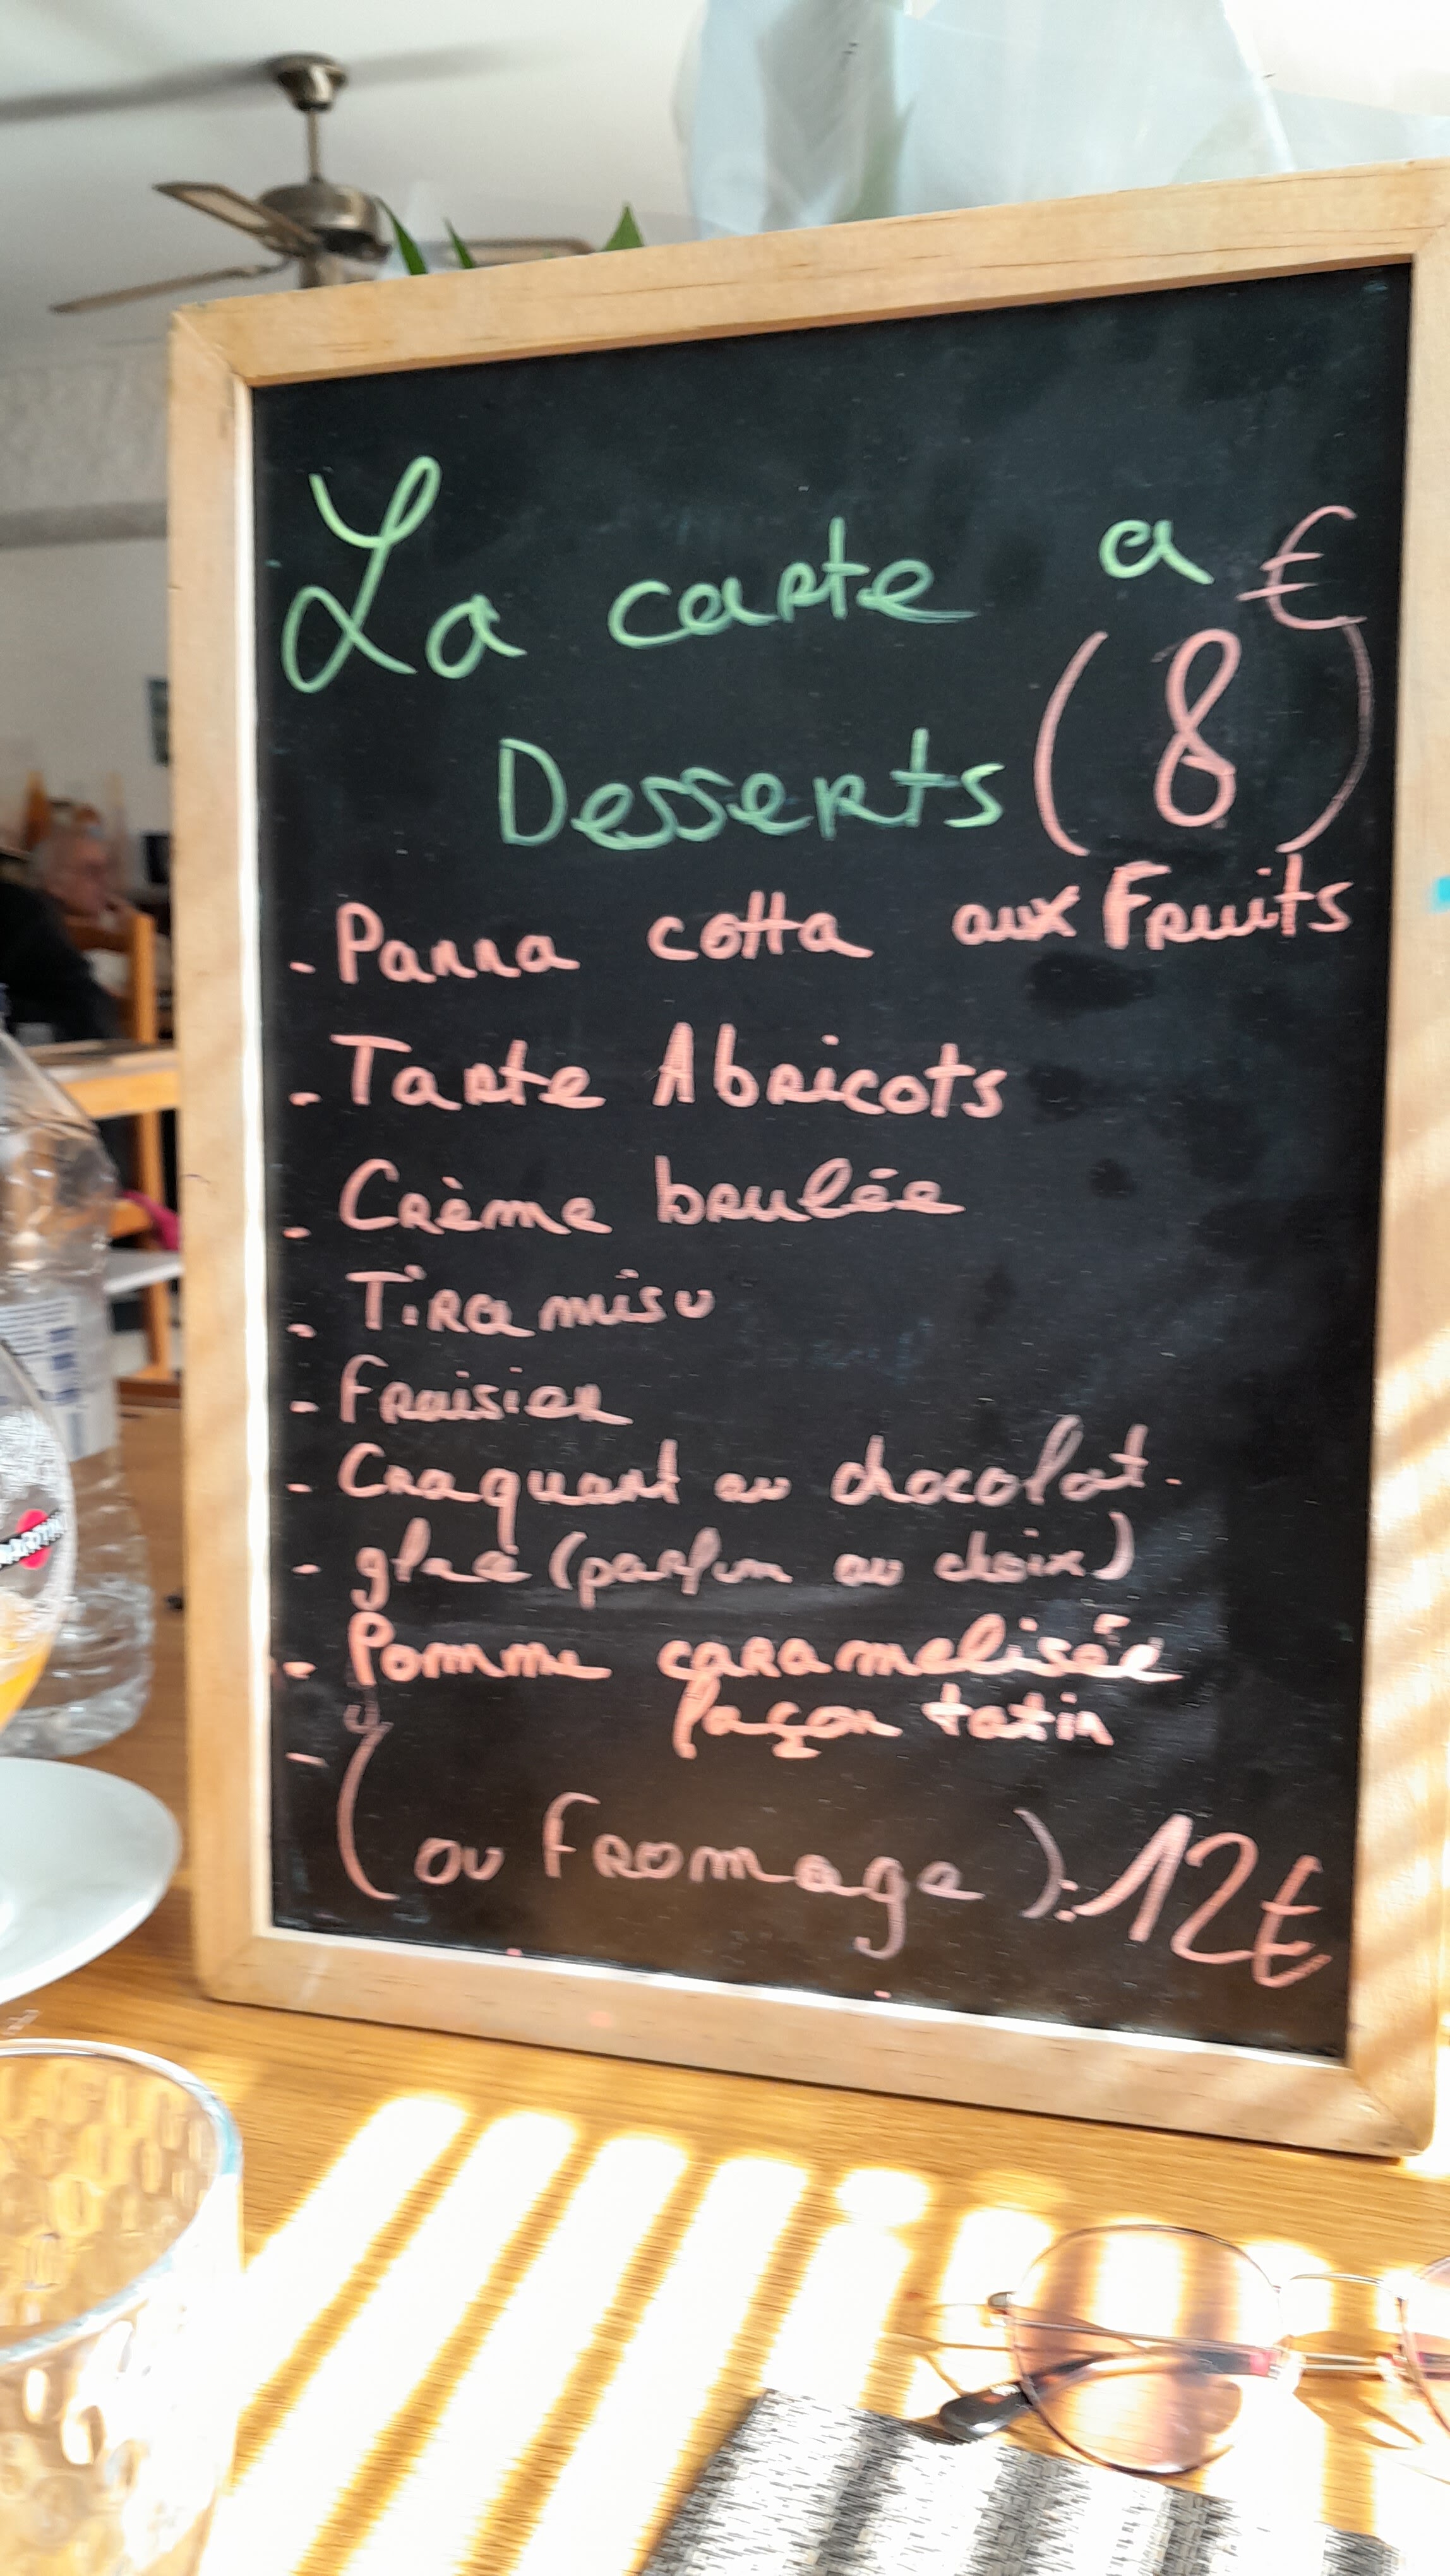 La carte a €
Desserts (8)
- Panna cotta aux Fruits
- Tarte Abricots
- Crème brulée
- Tiramisu
- Fraisier
- Craquant au chocolat.
- glace (parfum au choix)
- Pomme caramelisée
façon tatin
- (ou Fromage): 12€
MARTINI